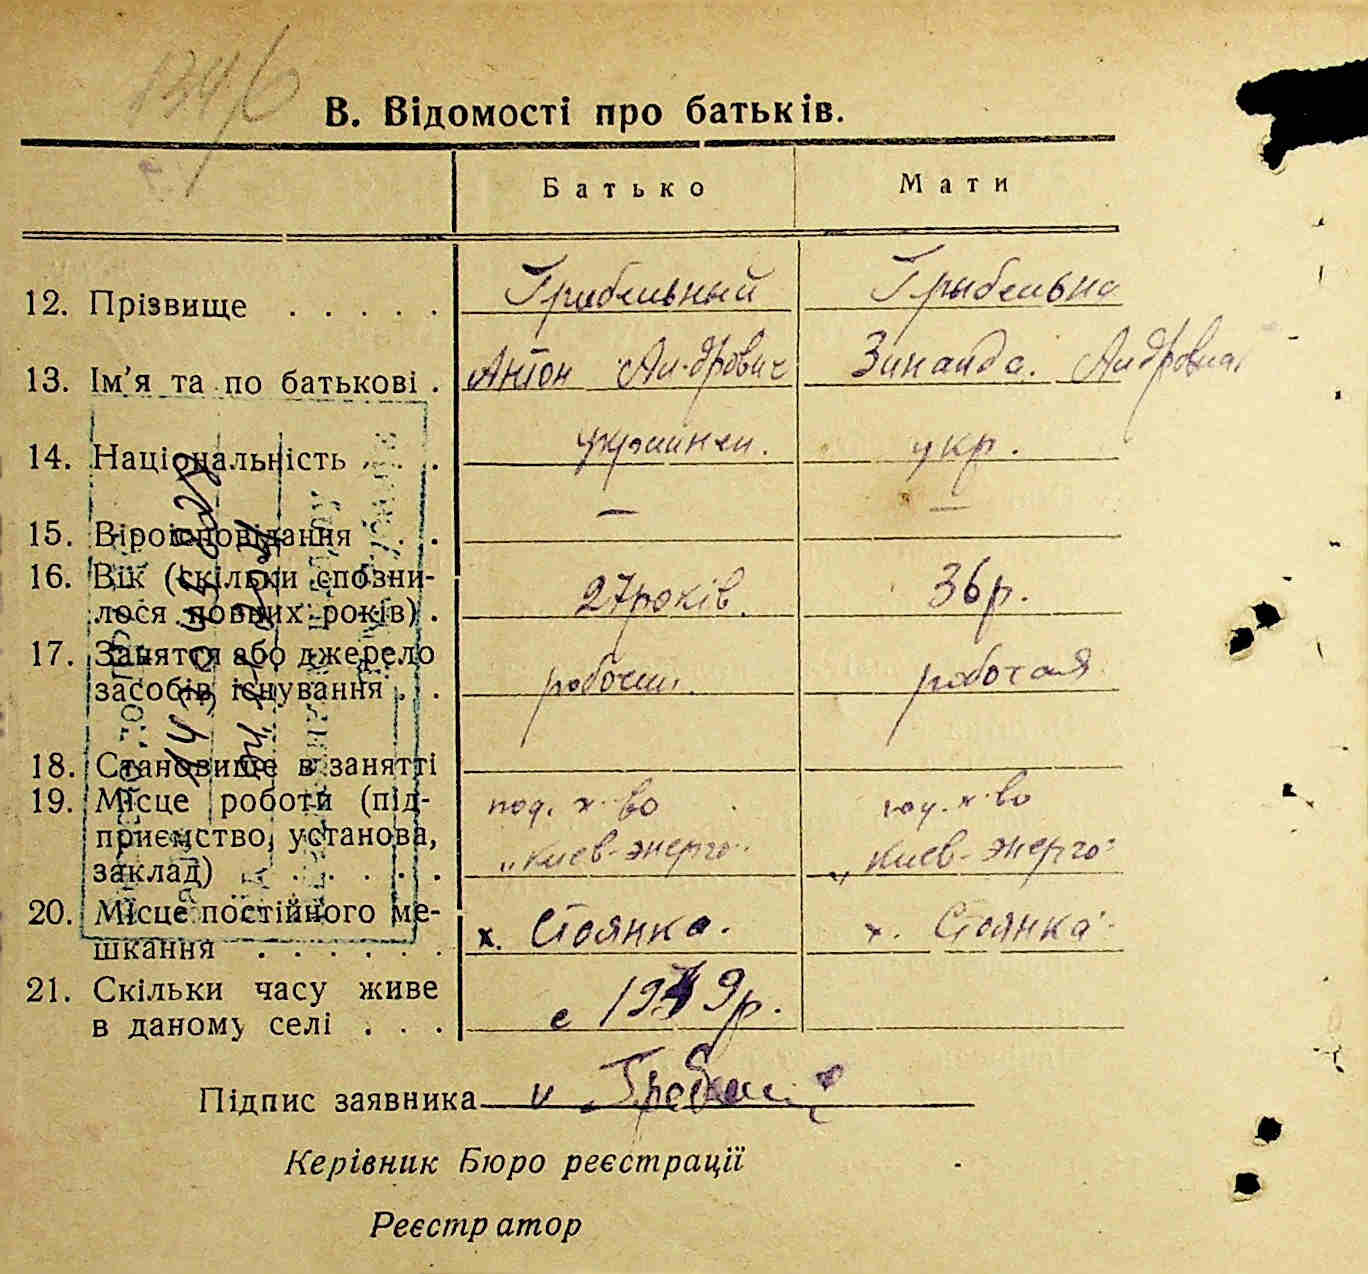 1246
В. Відомості про батьків.
Батько Мати
12. Прізвище . . . . . Грибельный Грыбельна
13. Ім'я та по батькові . Антон Андрович Зинаида. Андровна
14. Національність . . . украинец. укр.
15. Віроісповідання . . — —
16. Вік (скільки сповни-
лося повних років) . 27 років. 36 р.
17. Заняття або джерело
засобів існування . . рабочий. работая
18. Становище в занятті
19. Місце роботи (під- под. х-во под. х-во
приємство, установа,
заклад) . . . . . „Киев-энерго" „Киев-энерго"
20. Місце постійного ме-
шкання . . . . . . х. Стоянка. х. Стоянка
21. Скільки часу живе
в даному селі . . . с 1939 р.
Підпис заявника
Керівник Бюро реєстрації
Реєстратор